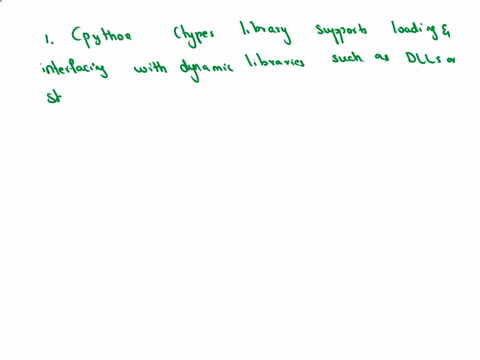 1. Cpython Ctypes library supports loading &
interfacing with dynamic libraries such as DLLs or
st